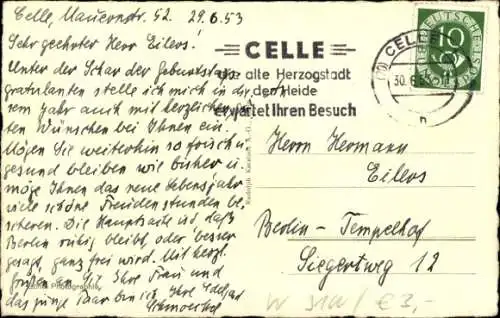 Celle, Mauernstr. 52. 29.6.53
Sehr geehrter Herr Eilers!
Unter der Schar der Geburtstags-
gratulanten stelle ich mich in die-
sem Jahr auch mit herzlichen
ten Wünschen bei Ihnen ein.
Mögen Sie weiterhin so frisch u.
gesund bleiben wie bisher u.
möge Ihnen das neue Lebensjahr
viele schöne Freudenstunden be-
scheren. Die Hauptsache ist, daß
Berlin ruhig bleibt, oder besser
gesagt, ganz frei wird. Mit herzl.
Grüßen an Sie, Ihre Frau und
das junge Paar bin ich Ihre
CELLE
die alte Herzogstadt
der Heide
erwartet Ihren Besuch
CELLE
30.6.53
n
DEUTSCHE POST
10
Herrn Hermann
Eilers
Berlin - Tempelhof
Siegertweg 12
€ 3,-